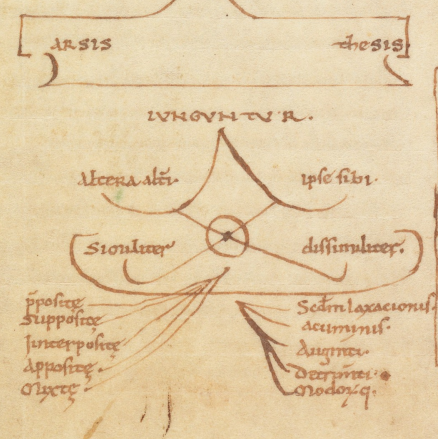 ARSIS thesis
IUNGUNTUR.
Altera alti· ipse sibi·
Similiter dissimiliter·
p̄positę
Suppositę
Interpositę
Appositę
Mixtę
Scdm̄ laxacionis·
acuminis·
Augm̄ti·
Detrim̄ti·
Modorꝝ·